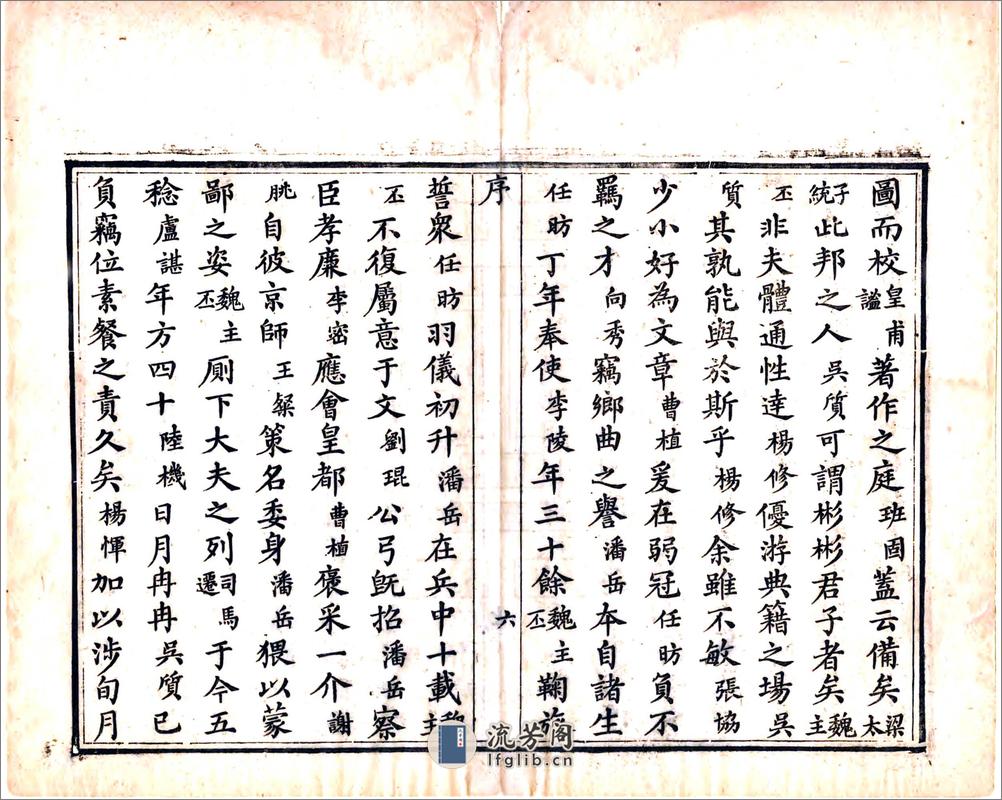 圖而校皇甫謐著作之庭班固蓋云備矣梁太
子統此邦之人吳質可謂彬彬君子者矣魏主
丕非夫體通性達楊修優游典籍之場吳
質其孰能與於斯乎楊修余雖不敏張協
少小好為文章曹植爰在弱冠任昉負不
羈之才向秀竊鄉曲之譽潘岳本自諸生
任昉丁年奉使李陵年三十餘魏主丕鞠旅
序 六
誓衆任昉羽儀初升潘岳在兵中十載魏主
丕不復屬意于文劉琨公弓既招潘岳察
臣孝廉李密應會皇都曹植褒采一介謝
朓自彼京師王粲策名委身潘岳猥以蒙
鄙之姿魏主丕厠下大夫之列司馬遷于今五
稔盧諶年方四十陸機日月冉冉吳質已
負竊位素餐之責久矣楊惲加以涉旬月
流芳阁
lfglib.cn